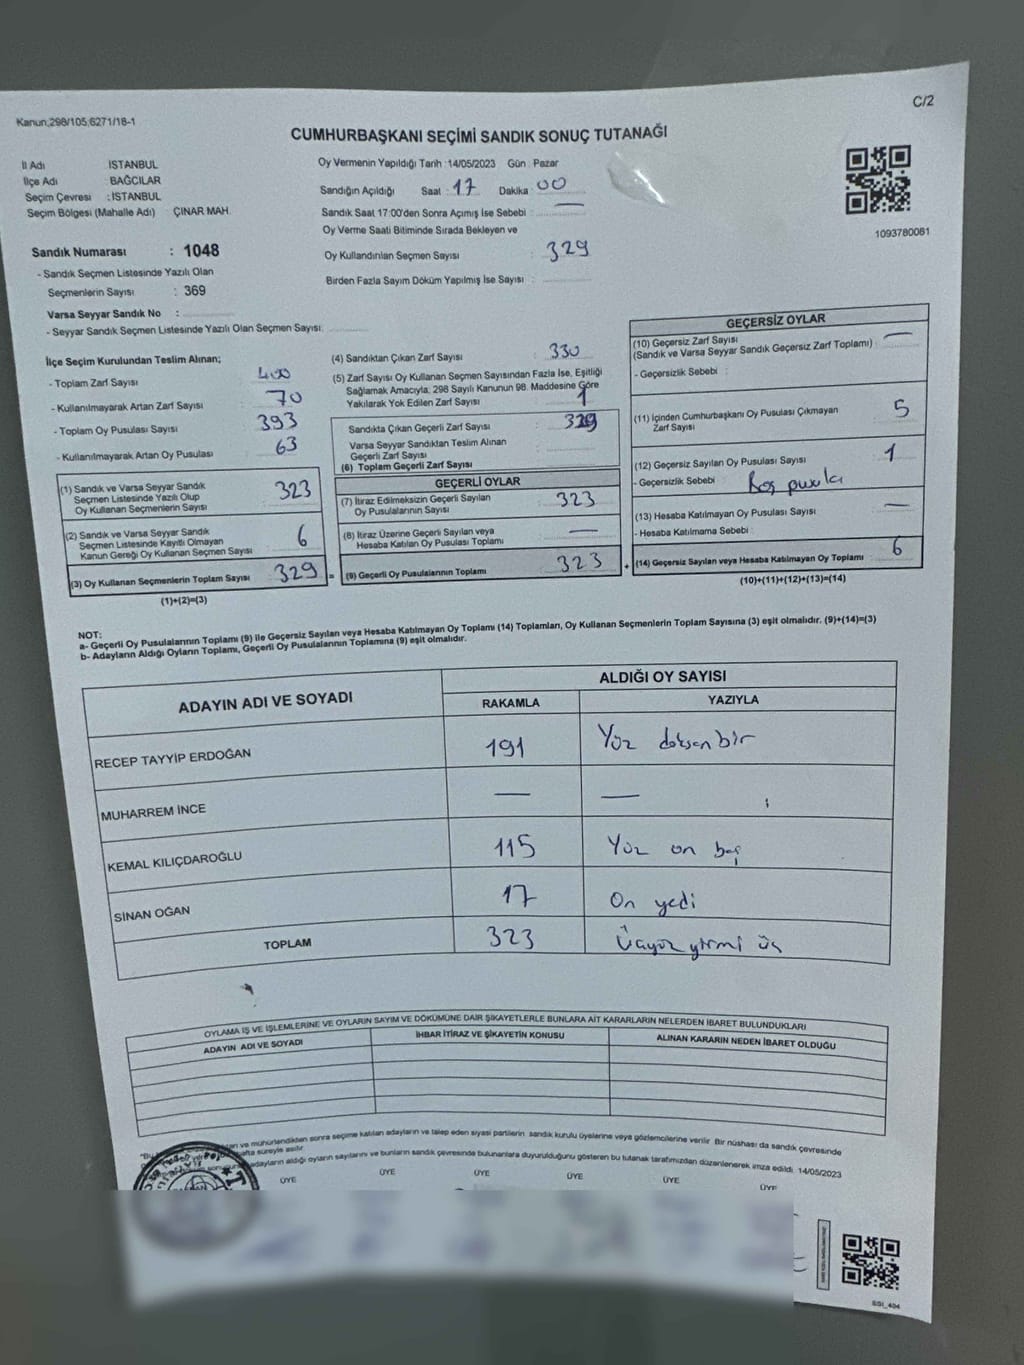 Kanun;298/105;6271/18-1
C/2
CUMHURBAŞKANI SEÇİMİ SANDIK SONUÇ TUTANAĞI
İl Adı : İSTANBUL
İlçe Adı : BAĞCILAR
Seçim Çevresi : İSTANBUL
Seçim Bölgesi (Mahalle Adı) ÇINAR MAH.
Sandık Numarası : 1048
- Sandık Seçmen Listesinde Yazılı Olan
Seçmenlerin Sayısı : 369
Varsa Seyyar Sandık No :
- Seyyar Sandık Seçmen Listesinde Yazılı Olan Seçmen Sayısı:
Oy Vermenin Yapıldığı Tarih : 14/05/2023 Gün : Pazar
Sandığın Açıldığı Saat : 17 Dakika : 00
Sandık Saat 17:00'den Sonra Açımış İse Sebebi : —
Oy Verme Saati Bitiminde Sırada Bekleyen ve
Oy Kullandırılan Seçmen Sayısı : 329
Birden Fazla Sayım Döküm Yapılmış İse Sayısı :
1093780081
İlçe Seçim Kurulundan Teslim Alınan;
- Toplam Zarf Sayısı : 400
- Kullanılmayarak Artan Zarf Sayısı : 70
- Toplam Oy Pusulası Sayısı : 393
- Kullanılmayarak Artan Oy Pusulası : 63
(1) Sandık ve Varsa Seyyar Sandık
Seçmen Listesinde Yazılı Olup
Oy Kullanan Seçmenlerin Sayısı : 323
(2) Sandık ve Varsa Seyyar Sandık
Seçmen Listesinde Kayıtlı Olmayan
Kanun Gereği Oy Kullanan Seçmen Sayısı : 6
(3) Oy Kullanan Seçmenlerin Toplam Sayısı : 329
(1)+(2)=(3)
=
(4) Sandıktan Çıkan Zarf Sayısı : 330
(5) Zarf Sayısı Oy Kullanan Seçmen Sayısından Fazla İse, Eşitliği
Sağlamak Amacıyla; 298 Sayılı Kanunun 98. Maddesine Göre
Yakılarak Yok Edilen Zarf Sayısı : 1
Sandıkta Çıkan Geçerli Zarf Sayısı : 329
Varsa Seyyar Sandıktan Teslim Alınan
Geçerli Zarf Sayısı :
(6) Toplam Geçerli Zarf Sayısı :
GEÇERLİ OYLAR
(7) İtiraz Edilmeksizin Geçerli Sayılan
Oy Pusulalarının Sayısı : 323
(8) İtiraz Üzerine Geçerli Sayılan veya
Hesaba Katılan Oy Pusulası Toplamı : —
(9) Geçerli Oy Pusulalarının Toplamı : 323
+
GEÇERSİZ OYLAR
(10) Geçersiz Zarf Sayısı
(Sandık ve Varsa Seyyar Sandık Geçersiz Zarf Toplamı) : —
- Geçersizlik Sebebi :
(11) İçinden Cumhurbaşkanı Oy Pusulası Çıkmayan
Zarf Sayısı : 5
(12) Geçersiz Sayılan Oy Pusulası Sayısı : 1
- Geçersizlik Sebebi : Boş pusula
(13) Hesaba Katılmayan Oy Pusulası Sayısı : —
- Hesaba Katılmama Sebebi :
(14) Geçersiz Sayılan veya Hesaba Katılmayan Oy Toplamı : 6
(10)+(11)+(12)+(13)=(14)
NOT:
a- Geçerli Oy Pusulalarının Toplamı (9) ile Geçersiz Sayılan veya Hesaba Katılmayan Oy Toplamı (14) Toplamları, Oy Kullanan Seçmenlerin Toplam Sayısına (3) eşit olmalıdır. (9)+(14)=(3)
b- Adayların Aldığı Oyların Toplamı, Geçerli Oy Pusulalarının Toplamına (9) eşit olmalıdır.
ADAYIN ADI VE SOYADI ALDIĞI OY SAYISI
RAKAMLA YAZIYLA
RECEP TAYYİP ERDOĞAN 191 Yüz doksan bir
MUHARREM İNCE — —
KEMAL KILIÇDAROĞLU 115 Yüz on beş
SİNAN OĞAN 17 On yedi
TOPLAM 323 Üçyüz yirmi üç
OYLAMA İŞ VE İŞLEMLERİNE VE OYLARIN SAYIM VE DÖKÜMÜNE DAİR ŞİKAYETLERLE BUNLARA AİT KARARLARIN NELERDEN İBARET BULUNDUKLARI
ADAYIN ADI VE SOYADI İHBAR İTİRAZ VE ŞİKAYETİN KONUSU ALINAN KARARIN NEDEN İBARET OLDUĞU
ve mühürlendikten sonra seçime katılan adayların ve talep eden siyasi partilerin sandık kurulu üyelerine veya gözlemcilerine verilir. Bir nüshası da sandık çevresinde
hafta süreyle asılır.
adayların aldığı oyların sayılarını ve bunların sandık çevresinde bulunanlara duyurulduğunu gösteren bu tutanak tarafımızdan düzenlenerek imza edildi. 14/05/2023
ÜYE ÜYE ÜYE ÜYE ÜYE ÜYE